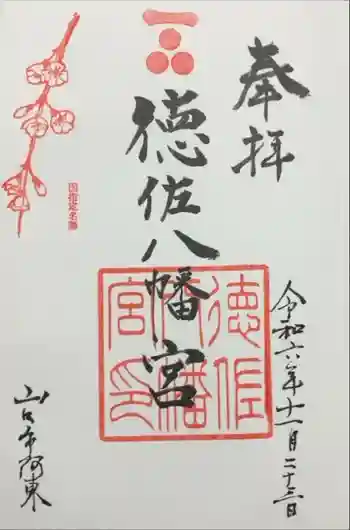 奉拝
令和六年十一月二十三日
徳佐八幡宮
徳佐八幡宮印
国指定名勝
山口市阿東